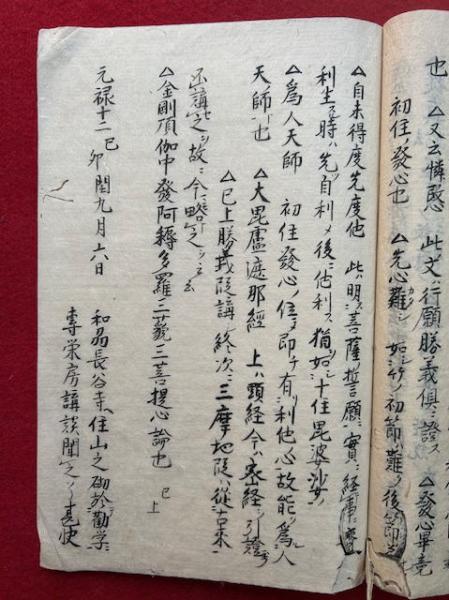 也 △又云憐愍心 此文ハ行願勝義倶ニ證ス △發心畢竟
初住發心也 △先心難シ 如シ竹ノ初節ハ難ク後節
△自未得度先度他 此ハ明ス菩薩誓願ヲ實ニ経
利生スル時ハ先自利メ後ニ佗利ス猶如シ十住毘婆沙ノ
△為人天師 初住發心ノ位ニ即チ有利他心故能ク為人
天師ト也 △大毘盧遮那經 上ハ顕経今ハ密経ヲ引證
△已上勝義段講シ終ル次ニ三摩地段ハ從古来
不講之ヲ故ニ今略之ヲ云云
△金剛頂伽中發阿耨多羅三藐三菩提心論也 已上
元禄十二己卯閏九月六日
和刕長谷寺住山之砌於勸学
専栄房講談聞之了